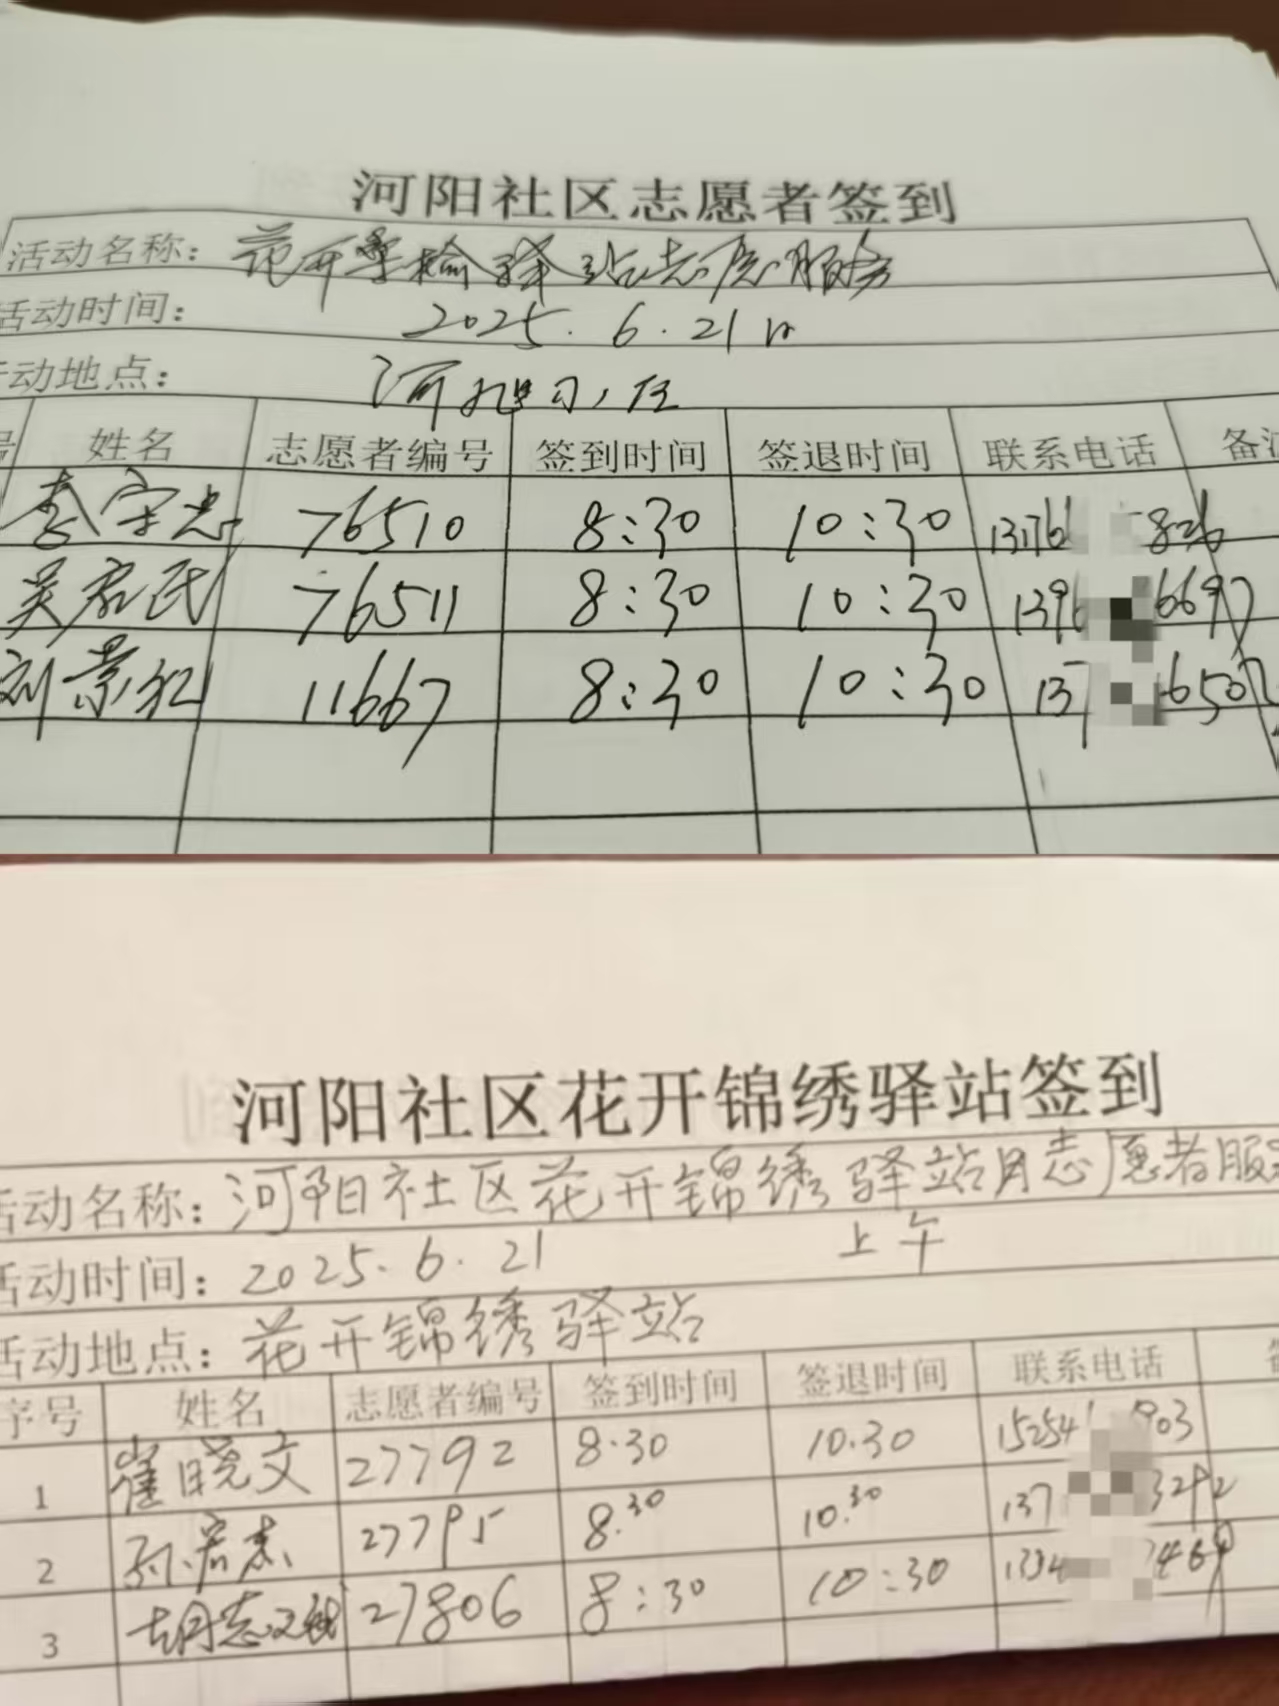 河阳社区志愿者签到
活动名称：花开 驿站志愿服务
活动时间：2025.6.21日
动地点：河阳
号 姓名 志愿者编号 签到时间 签退时间 联系电话 备注
李守忠 76510 8:30 10:30 13176 826
吴 民 76511 8:30 10:30 139 6697
刘景红 11667 8:30 10:30 137 6507
河阳社区花开锦绣驿站签到
活动名称：河阳社区花开锦绣驿站月志愿者服
活动时间：2025.6.21 上午
活动地点：花开锦绣驿站
序号 姓名 志愿者编号 签到时间 签退时间 联系电话
1 崔晓文 27792 8.30 10.30 15254 903
2 孙 志 27795 8.30 10.30 137 3292
3 胡志 27806 8:30 10:30 1334 7469